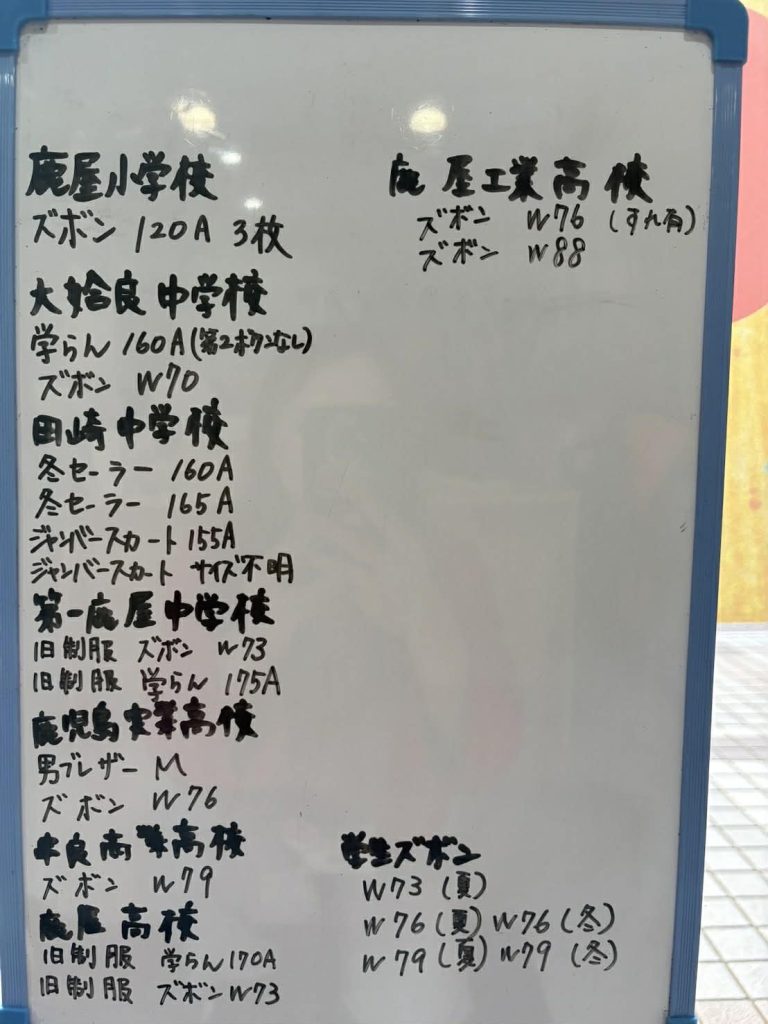 鹿屋小学校
ズボン 120A 3枚
大姶良中学校
学らん 160A(第2ボタンなし)
ズボン W70
田崎中学校
冬セーラー 160A
冬セーラー 165A
ジャンバースカート 155A
ジャンバースカート サイズ不明
第一鹿屋中学校
旧制服 ズボン W73
旧制服 学らん 175A
鹿児島実業高校
男ブレザー M
ズボン W76
串良商業高校
ズボン W79
鹿屋高校
旧制服 学らん170A
旧制服 ズボンW73
鹿屋工業高校
ズボン W76 (すれ有)
ズボン W88
学生ズボン
W73(夏)
W76(夏) W76(冬)
W79(夏) W79(冬)